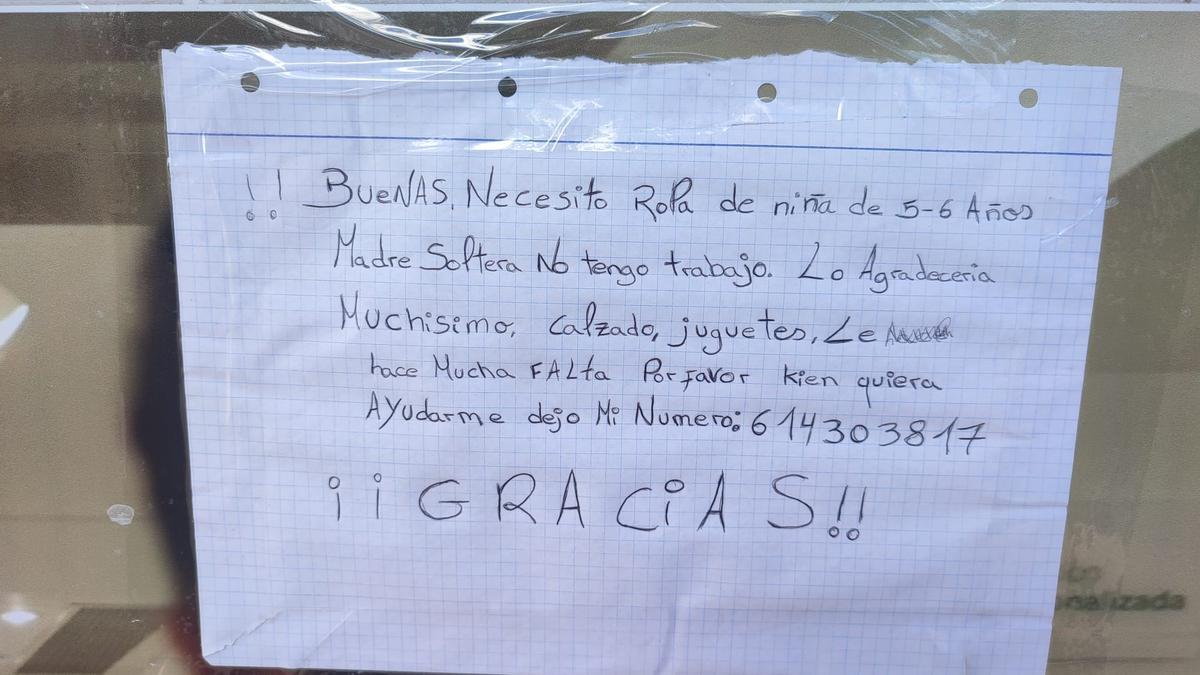 !! BUENAS, Necesito Ropa de niña de 5-6 Años
Madre Soltera No tengo trabajo. Lo Agradeceria
Muchisimo, calzado, juguetes, Le
hace Mucha FALta Por favor kien quiera
AYudarme dejo Mi Numero: 614303817
¡¡GRACiAS!!
nalizada